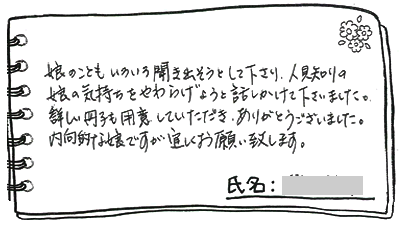 娘のこともいろいろ聞き出そうとして下さり、人見知りの
娘の気持ちをやわらげようと話しかけて下さいました。
詳しい冊子も用意していただき、ありがとうございました。
内向的な娘ですが宜しくお願い致します。
氏名: